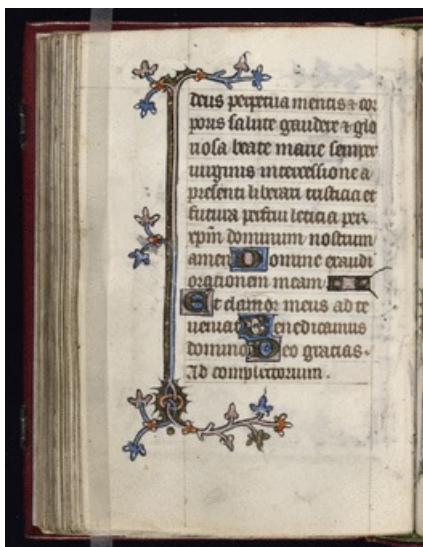 deus perpetua mentis ⁊ cor
poris salute gaudere ⁊ glo
riosa beate marie semper
uirginis intercessione a
presenti liberari tristicia et
futura perfrui leticia per
xpm dominum nostrum
amen Domine exaudi
orationem meam.
Et clamor meus ad te
ueniat Benedicamus
domino Deo gracias.
Ad completorium.